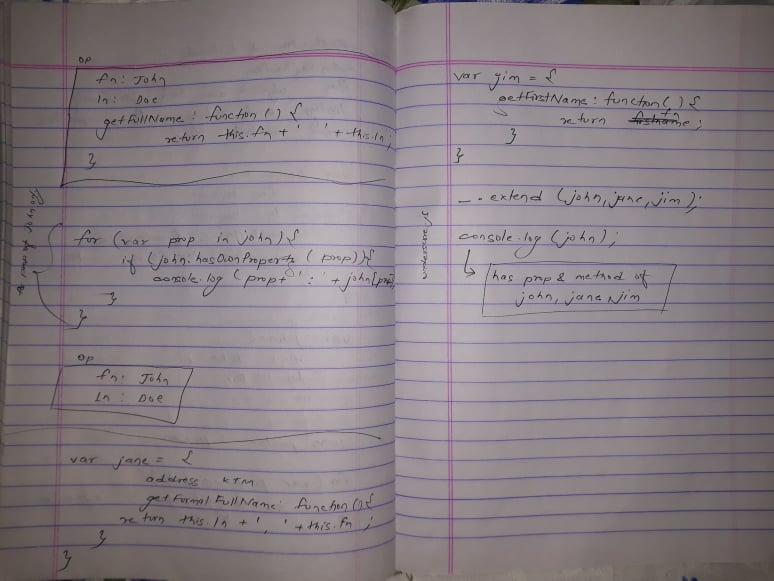 op
fn: John
ln: Doe
getFullName: function () {
return this.fn + ' ' + this.ln;
}
for (var prop in john) {
if (john.hasOwnProperty (prop)) {
console.log (prop + ':' + john[prop]
}
}
op
fn: John
ln: Doe
var jane = {
address KTM
getFormalFullName: function () {
return this.ln + ', ' + this.fn;
}
}
var jim = {
getFirstName: function () {
return fn;
}
}
underscore JS
_.extend (john, jane, jim);
console.log (john);
has prop & method of
john, jane, jim